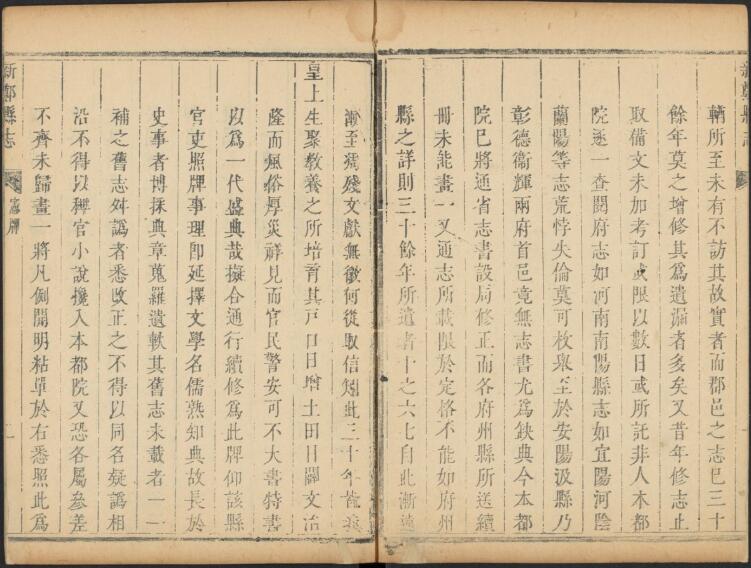 輶所至未有不訪其故實者而郡邑之志已三十
餘年莫之增修其為遺漏者多矣又昔年修志止
取備文未加考訂或限以數日或所託非人本都
院逐一查閱府志如河南南陽縣志如宜陽河陰
蘭陽等志荒悖失倫莫可枚舉至於安陽汲縣乃
彰德衞輝兩府首邑竟無志書尤為缺典今本都
院已將通省志書設局修正而各府州縣所送續
冊未能畫一又通志所載限於定格不能如府州
縣之詳則三十餘年所遺者十之六七自此漸遠
漸至殘文獻無徵何從取信矧此三十年皆我
皇上生聚教養之所培育其戶口日增土田日闢文治
隆而風俗厚災祥見而官民警安可不大書特書
以為一代盛典哉擬合通行續修為此牌仰該縣
官吏照牌事理即延擇文學名儒熟知典故長於
史事者博採典章蒐羅遺軼其舊志未載者一一
補之舊志舛譌者悉改正之不得以同名疑譌相
沿不得以稗官小說攙入本都院又恐各屬參差
不齊未歸畫一將凡例開明粘單於右悉照此為
新鄭縣志
憲牌
一